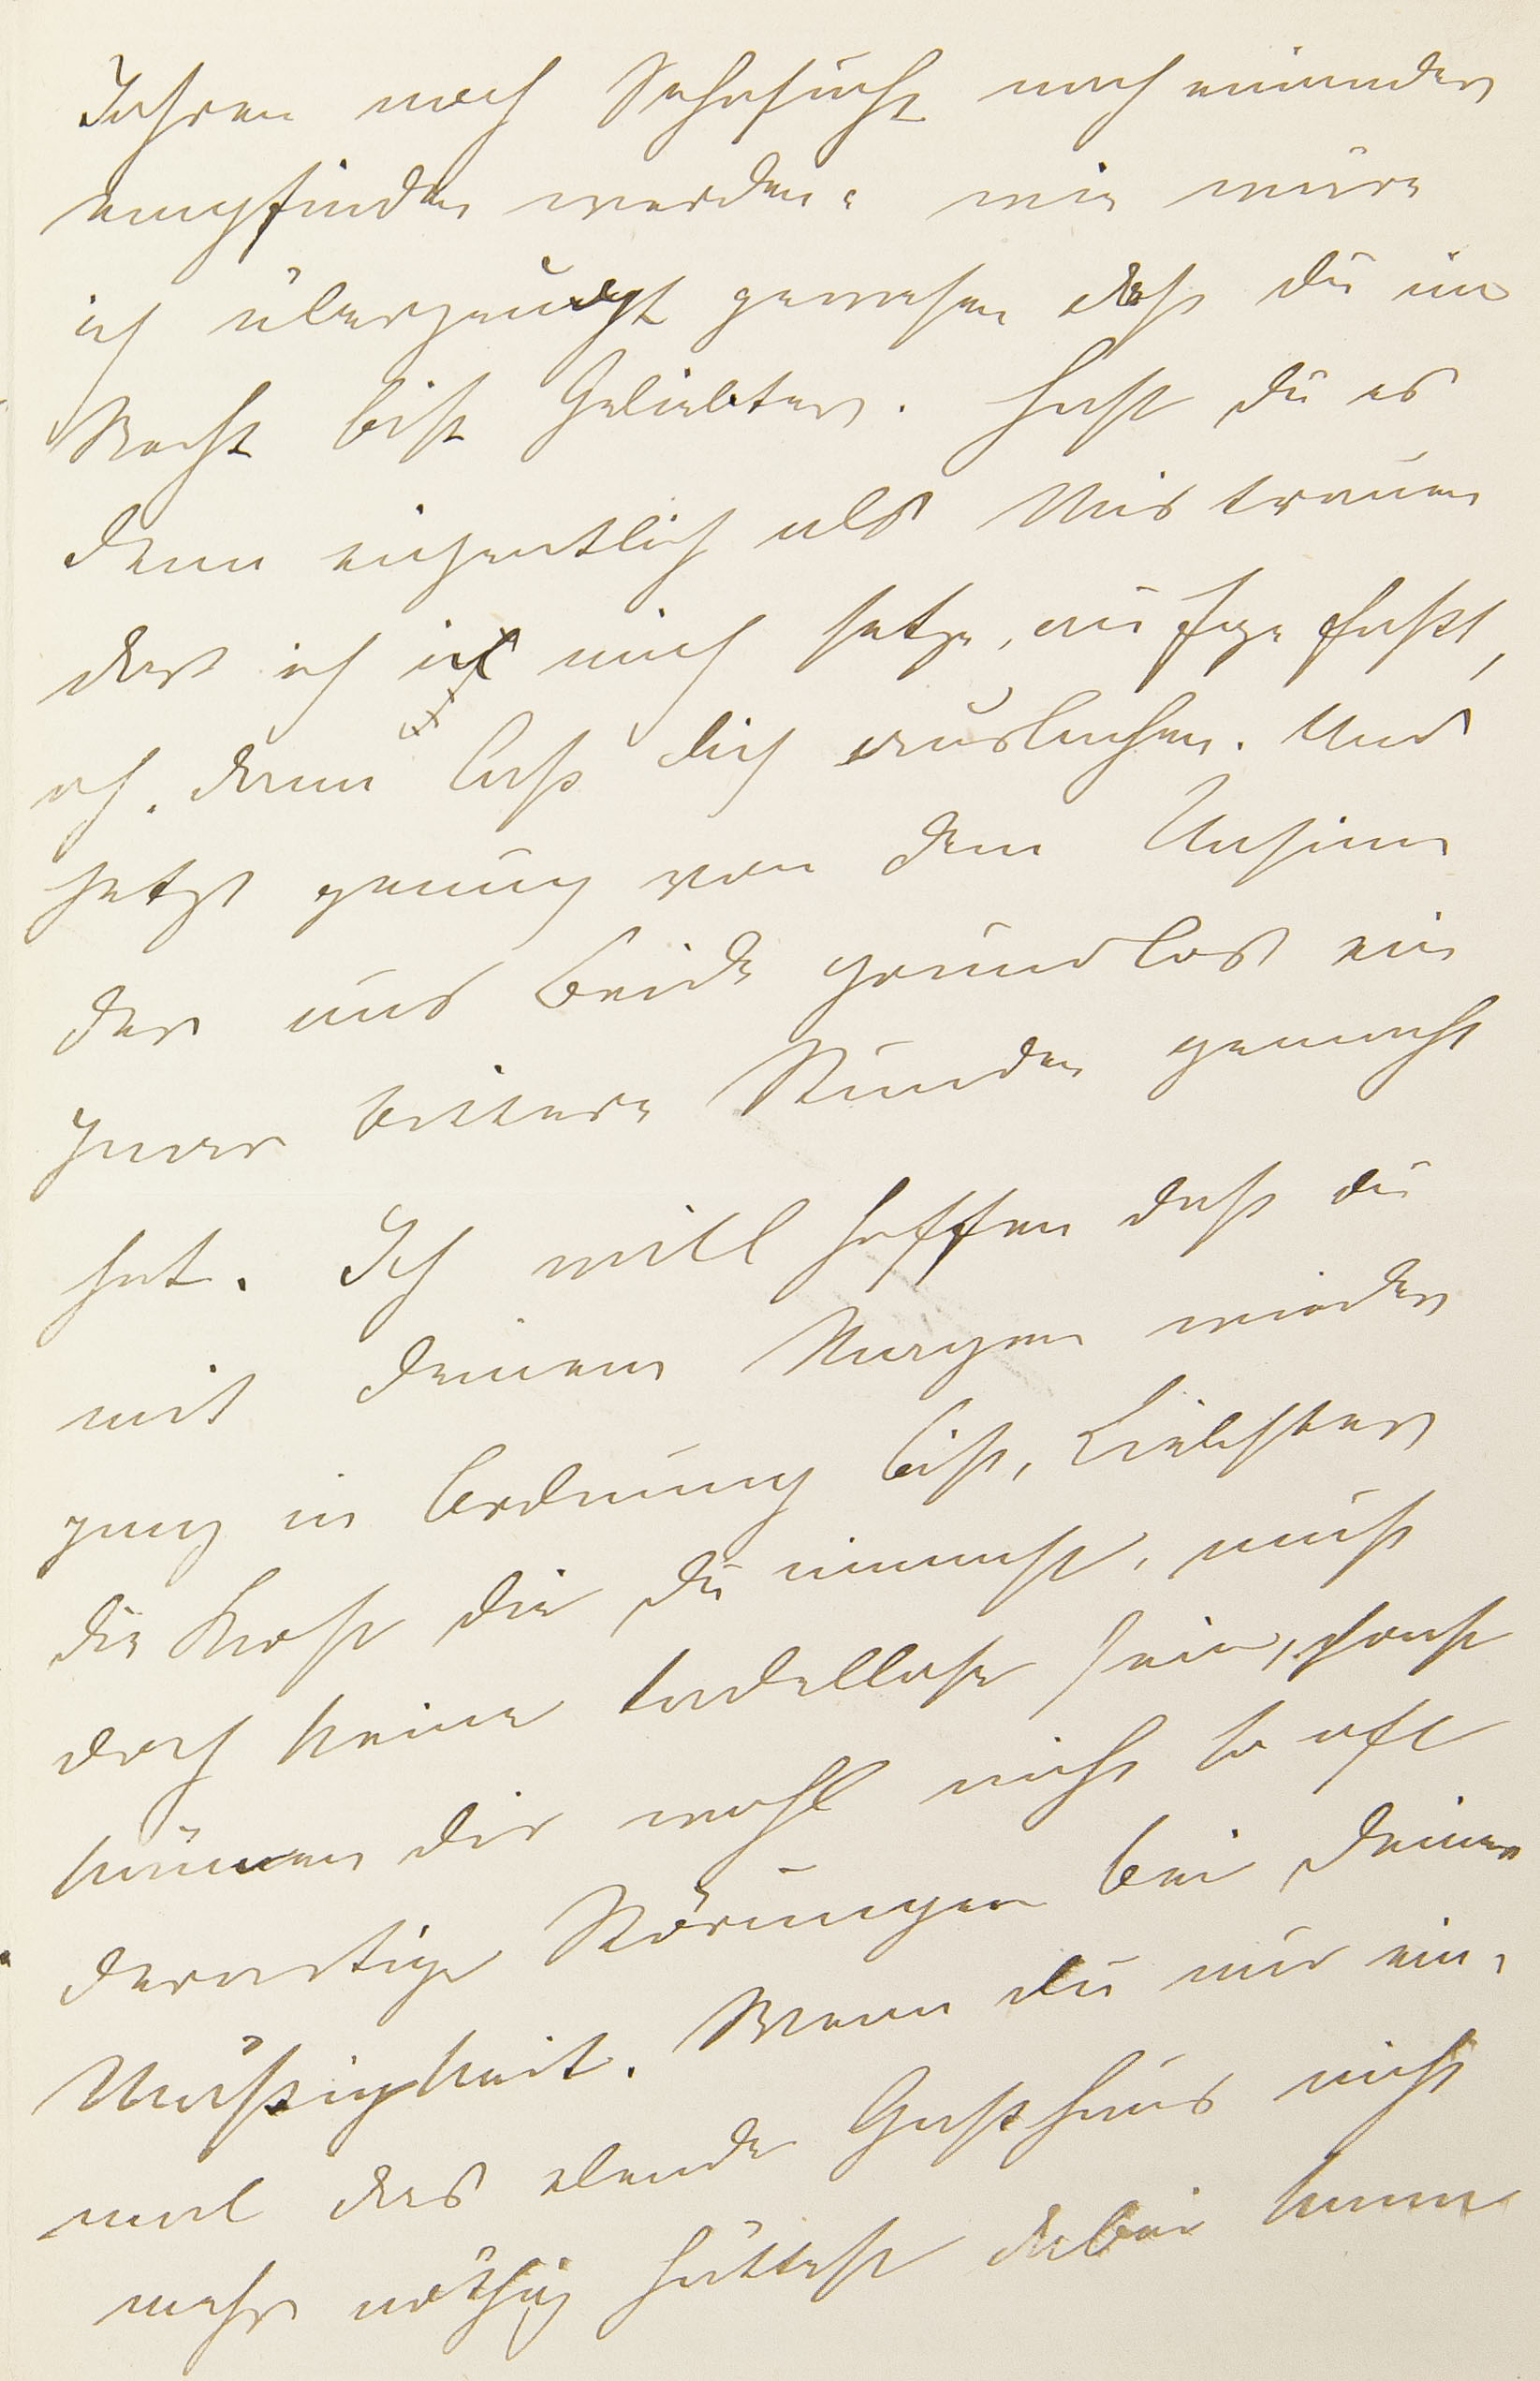 Jahren noch Sehnsucht nach einander
empfinden werden. nie wäre
ich überzeugt gewesen daß du im
Recht bist Geliebter. Hast du es
denn eigentlich als Mistrauen
das ich in mich setze, aufgefaßt,
oh. dann laß dich auslachen. Und
jetzt genug von dem Unsinn
der uns beide grundlos ein
paar bittere Stunden gemacht
hat. Ich will hoffen daß du
mit deinem Magen wieder
ganz in Ordnung bist, Liebster
die Kost die du nimmst, muß
doch keine tadellose sein, sonst
können dir wohl nicht so oft
derartige Störungen bei deiner
Mäßigkeit. Wenn du nur ein-
mal das elende Gasthaus nicht
mehr nöthig hättest dabei kann